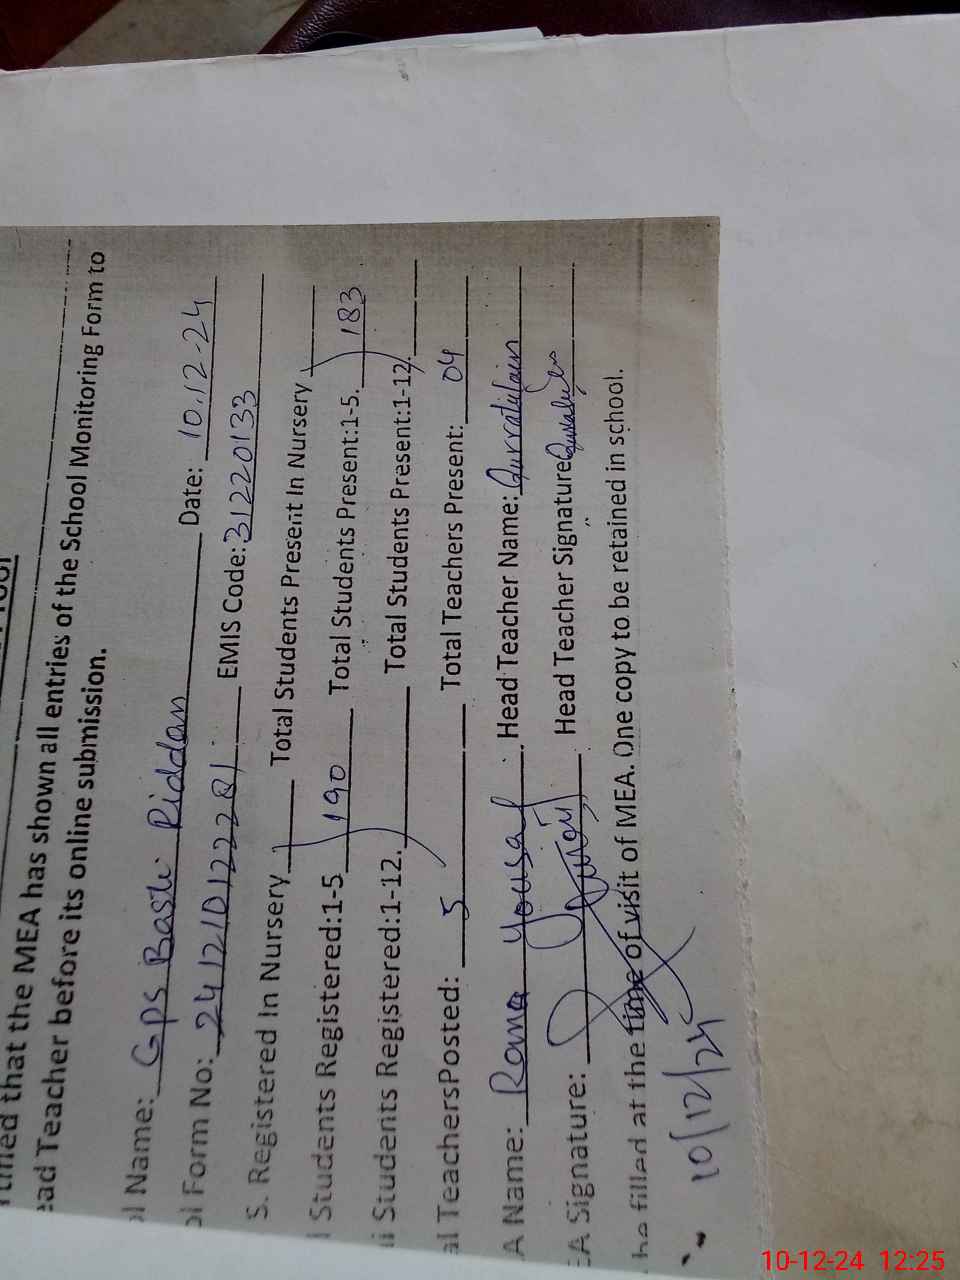 that the MEA has shown all entries of the School Monitoring Form to
ead Teacher before its online submission.
ol Name: GPS Basti Piddan Date: 10.12-24
ol Form No: EMIS Code: 31220133
S. Registered In Nursery Total Students Present In Nursery
l Students Registered:1-5 190 Total Students Present:1-5. 183
Students Registered:1-12. Total Students Present:1-12.
al TeachersPosted: 5 Total Teachers Present: 04
A Name: Roma Yousaf Head Teacher Name: Qurratulain
EA Signature: Head Teacher Signature
be filled at the time of visit of MEA. One copy to be retained in school.
10/12/24
10-12-24 12:25